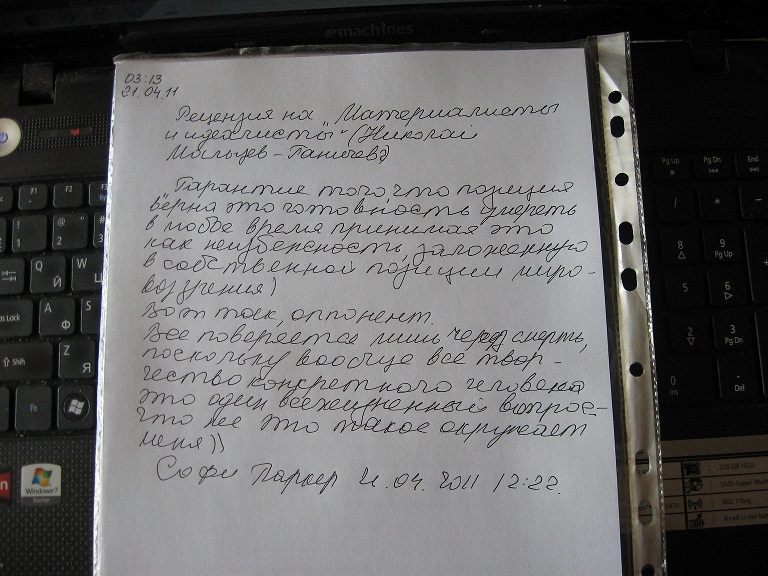 emachines
03:13
21.04.11
Рецензия на „Материалисты
и идеалисты" (Николай
Мальцев-Ганичев)
„Гарантие того, что позиция
верна это готовность умереть
в любое время принимая это
как неизбежность, заложенную
в собственной позиции миро-
воззрения)
Вот так, оппонент.
Все поверяется лишь через смерть,
поскольку вообще все твор-
чество конкретного человека
это один всежизненный вопрос-
что же это такое окружает
меня))
Софи Паркер 21.04.2011 12:22.
Pg Up
Pg Dn
End
F1
F2
F3
F4
Q Й
W Ц
A Ф
Z Я
Shift
Fn
/
*
-
8
9 Pg Up
5
6
2
3 Pg Dn
0 Ins
. Del
Windows7
320 GB HDD
DVD-Super Mult
802.11b/g
6-cell Li-ion